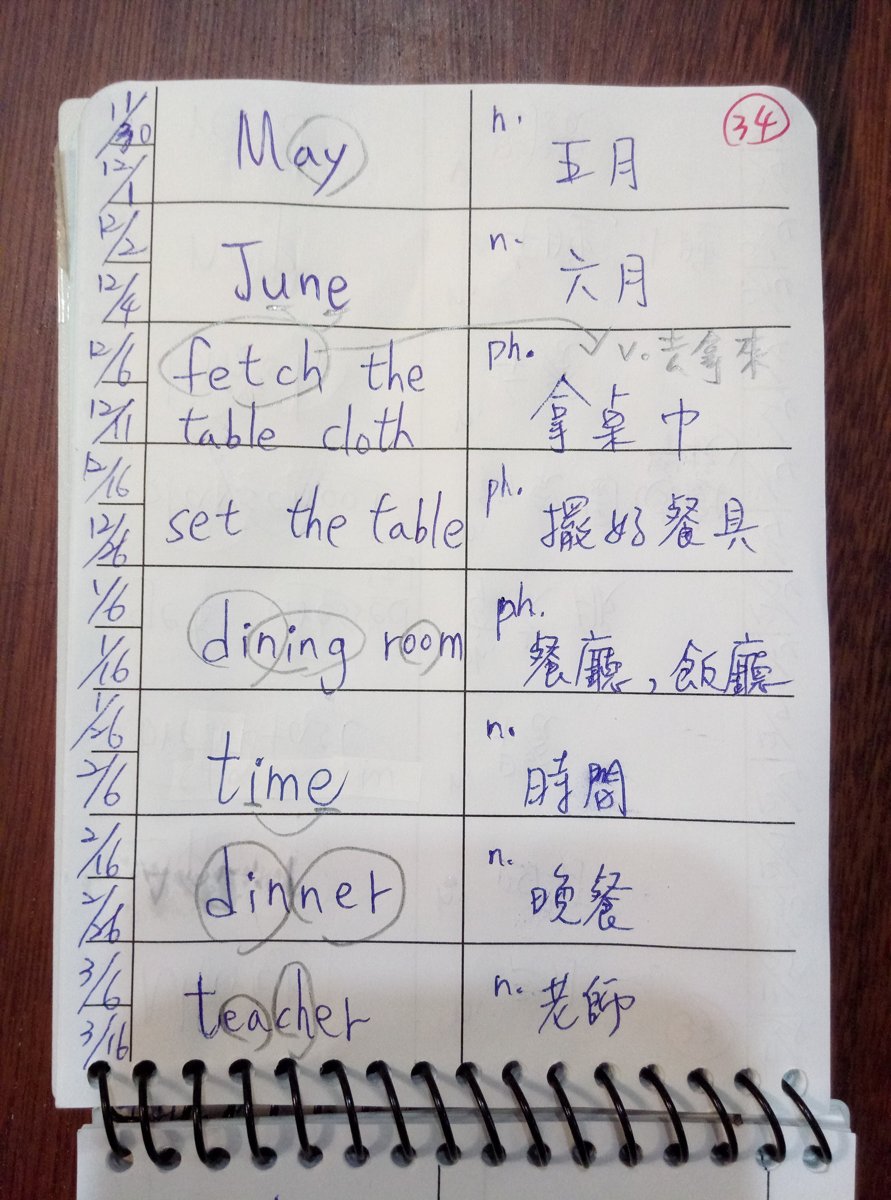 34
11/30
12/1
May
n.
五月
12/2
12/4
June
n.
六月
12/6
12/11
fetch the
table cloth
ph.
v. 去拿來
拿桌巾
12/16
12/26
set the table
ph.
擺好餐具
1/6
1/16
dining room
ph.
餐廳,飯廳
1/26
2/6
time
n.
時間
2/16
2/26
dinner
n.
晚餐
3/6
3/16
teacher
n. 老師